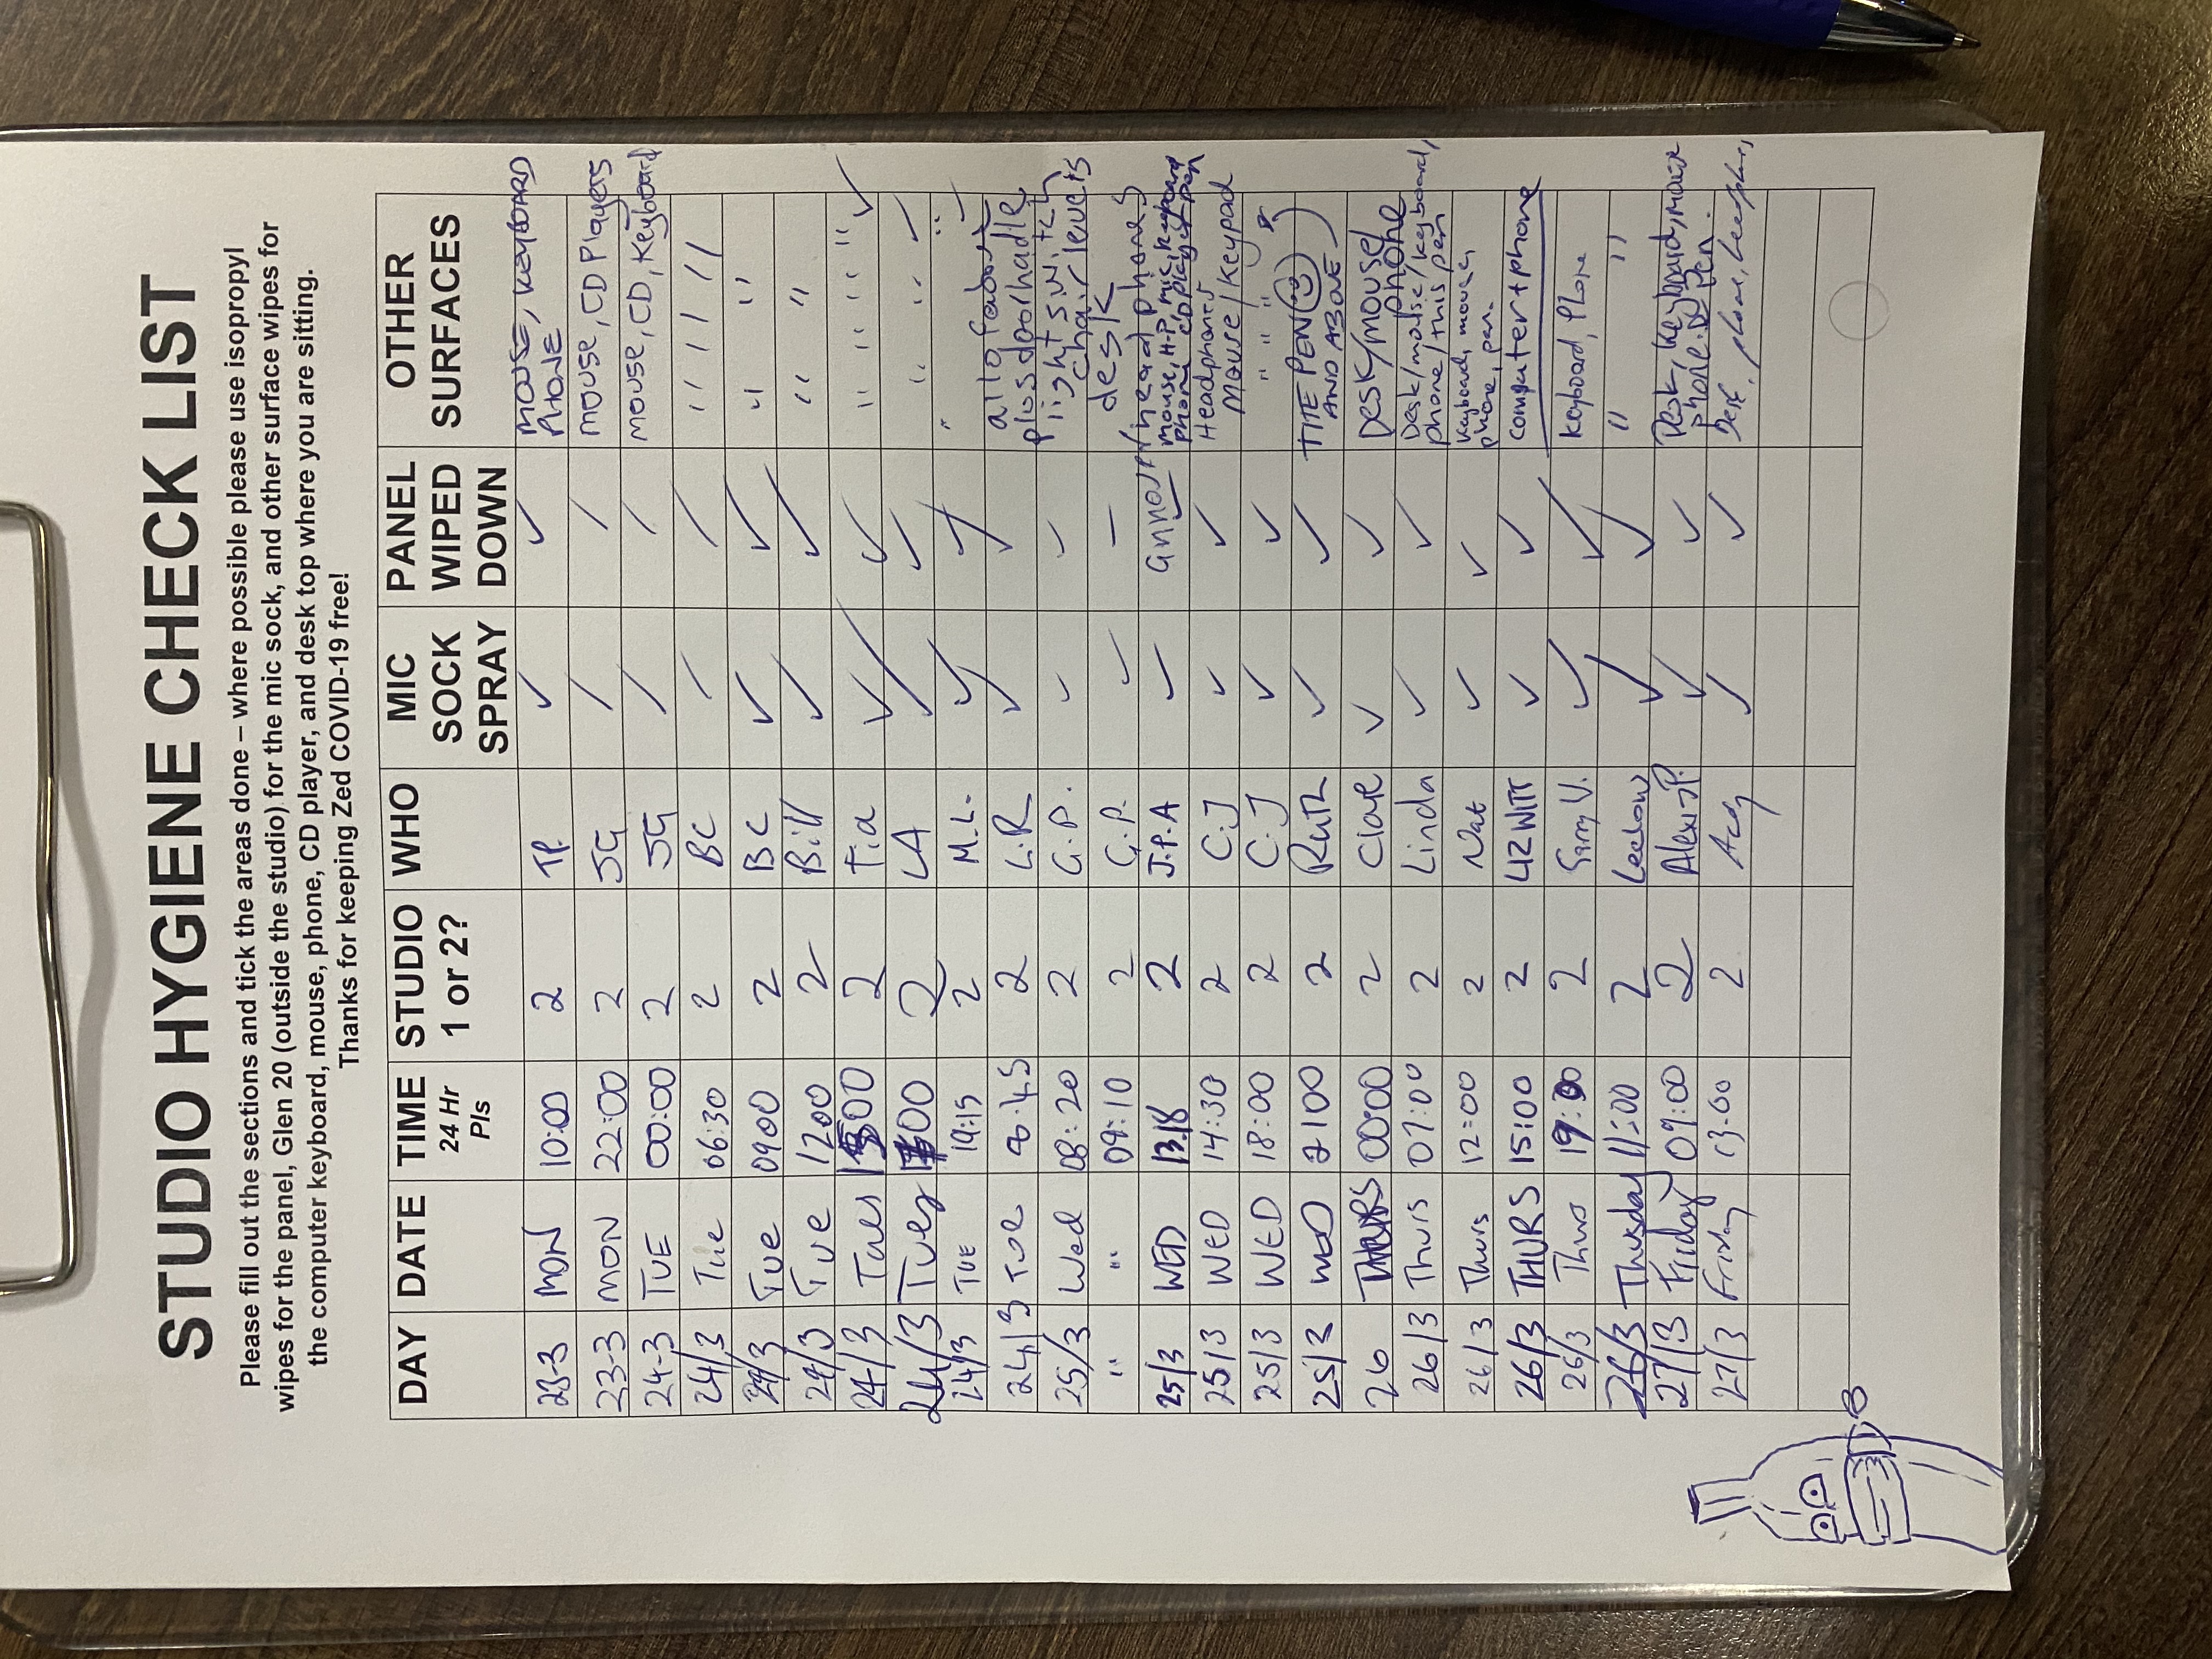 STUDIO HYGIENE CHECK LIST
Please fill out the sections and tick the areas done – where possible please use isopropyl
wipes for the panel, Glen 20 (outside the studio) for the mic sock, and other surface wipes for
the computer keyboard, mouse, phone, CD player, and desk top where you are sitting.
Thanks for keeping Zed COVID-19 free!
DAY DATE TIME 24 Hr Pls STUDIO 1 or 2? WHO MIC SOCK SPRAY PANEL WIPED DOWN OTHER SURFACES
23-3 MON 10:00 2 TP. ✓ ✓ MOUSE, KEYBOARD PHONE
23-3 MON 22:00 2 JG / / MOUSE, CD Players
24-3 TUE 00:00 2 JG / / MOUSE, CD, Keyboard
24/3 Tue 06:30 2 BC / / " / / / "
24/3 Tue 0900 2 BC ✓ ✓ " "
24/3 Tue 1200 2 Bill ✓ ✓ " "
24/3 Tues 1500 2 Tia ✓ ✓ " " " " ✓
24/3 Tues 00 2 LA ✓ ✓ " " ✓
24/3 TUE 19:15 2 M.L. ✓ ✓ " "
24/3 Tue 8:45 2 L.R ✓ ✓ all of above
plus door handle
25/3 Wed 08:20 2 G.P. ✓ ✓ light switch
chair levers
" " 09:10 2 G.P. ✓ – desk
announ headphones
25/3 WED 13.18 2 J.P.A ✓ ✓ mouse, H-P, mic, keyboard
phone CD player pen
25/3 WED 14:30 2 C.J ✓ ✓ Headphones
Mouse/Keypad
25/3 WED 18:00 2 C.J ✓ ✓ " " " "
25/3 WED 2100 2 RUTH ✓ ✓ THE PEN
AND ABOVE
26 THURS 00:00 2 Clare ✓ ✓ DESK/MOUSE
phone
26/3 Thurs 07:00 2 Linda ✓ ✓ Desk/mouse/keyboard,
phone/this pen
26/3 Thurs 12:00 2 Nat ✓ ✓ keyboard, mouse,
phone, pen.
26/3 THURS 15:00 2 LIZ WITT ✓ ✓ computer + phone
26/3 Thurs 19:00 2 V. ✓ ✓ Keyboard, Phone
26/3 Thursday 11:00 2 ✓ ✓ " "
27/3 Friday 09:00 2 Alexi P. ✓ ✓ Desk, keyboard, mouse
phone pen.
27/3 Friday 13.00 2 ✓ ✓ phone,